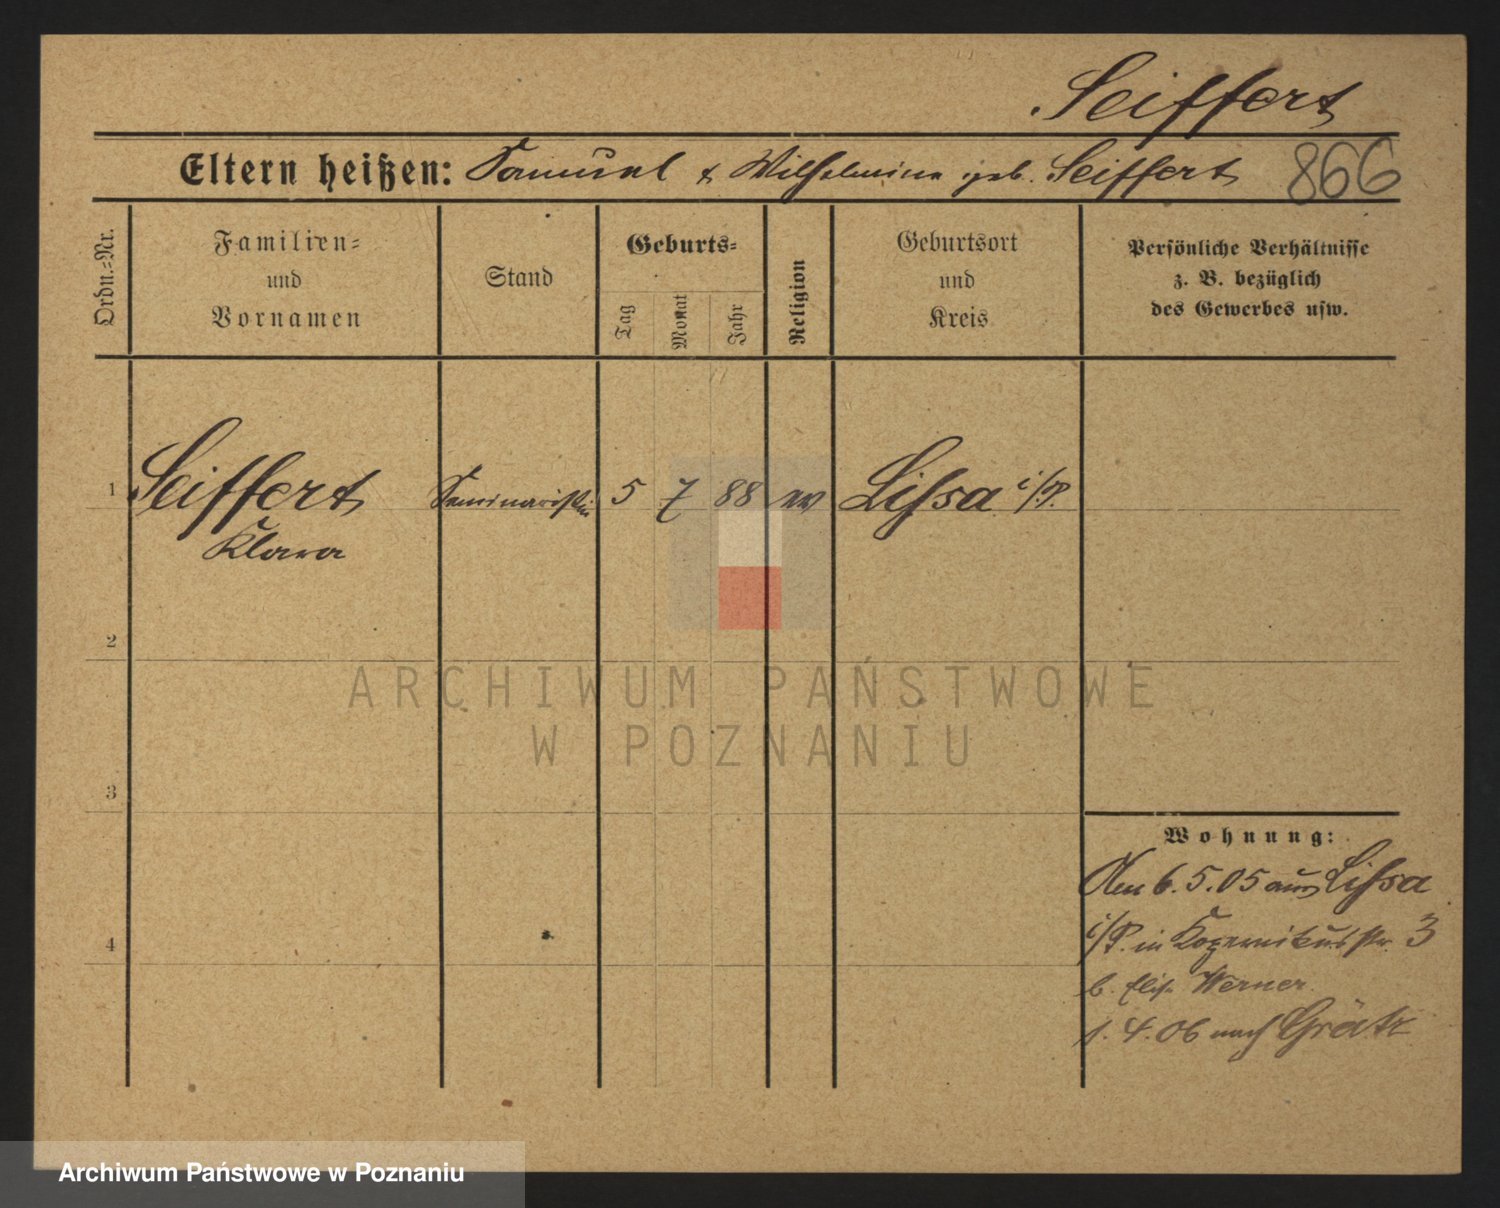 Seiffert
Eltern heißen: Samuel & Wilhelmine geb. Seiffert 866
Ordn.=Nr.
Familien=
und
Vornamen
Stand
Geburts=
Tag
Monat
Jahr
Religion
Geburtsort
und
Kreis
Persönliche Verhältnisse
z. B. bezüglich
des Gewerbes usw.
1 Seiffert Seminaristin 5 7 88 ev Lissa i/P.
Klara
2
ARCHIWUM PAŃSTWOWE
W POZNANIU
3
Wohnung:
Am 6.5.05 aus Lissa
i/P. in Kopernikusstr. 3
4
b. Elis. Werner
1.4.06 nach Grätz
Archiwum Państwowe w Poznaniu